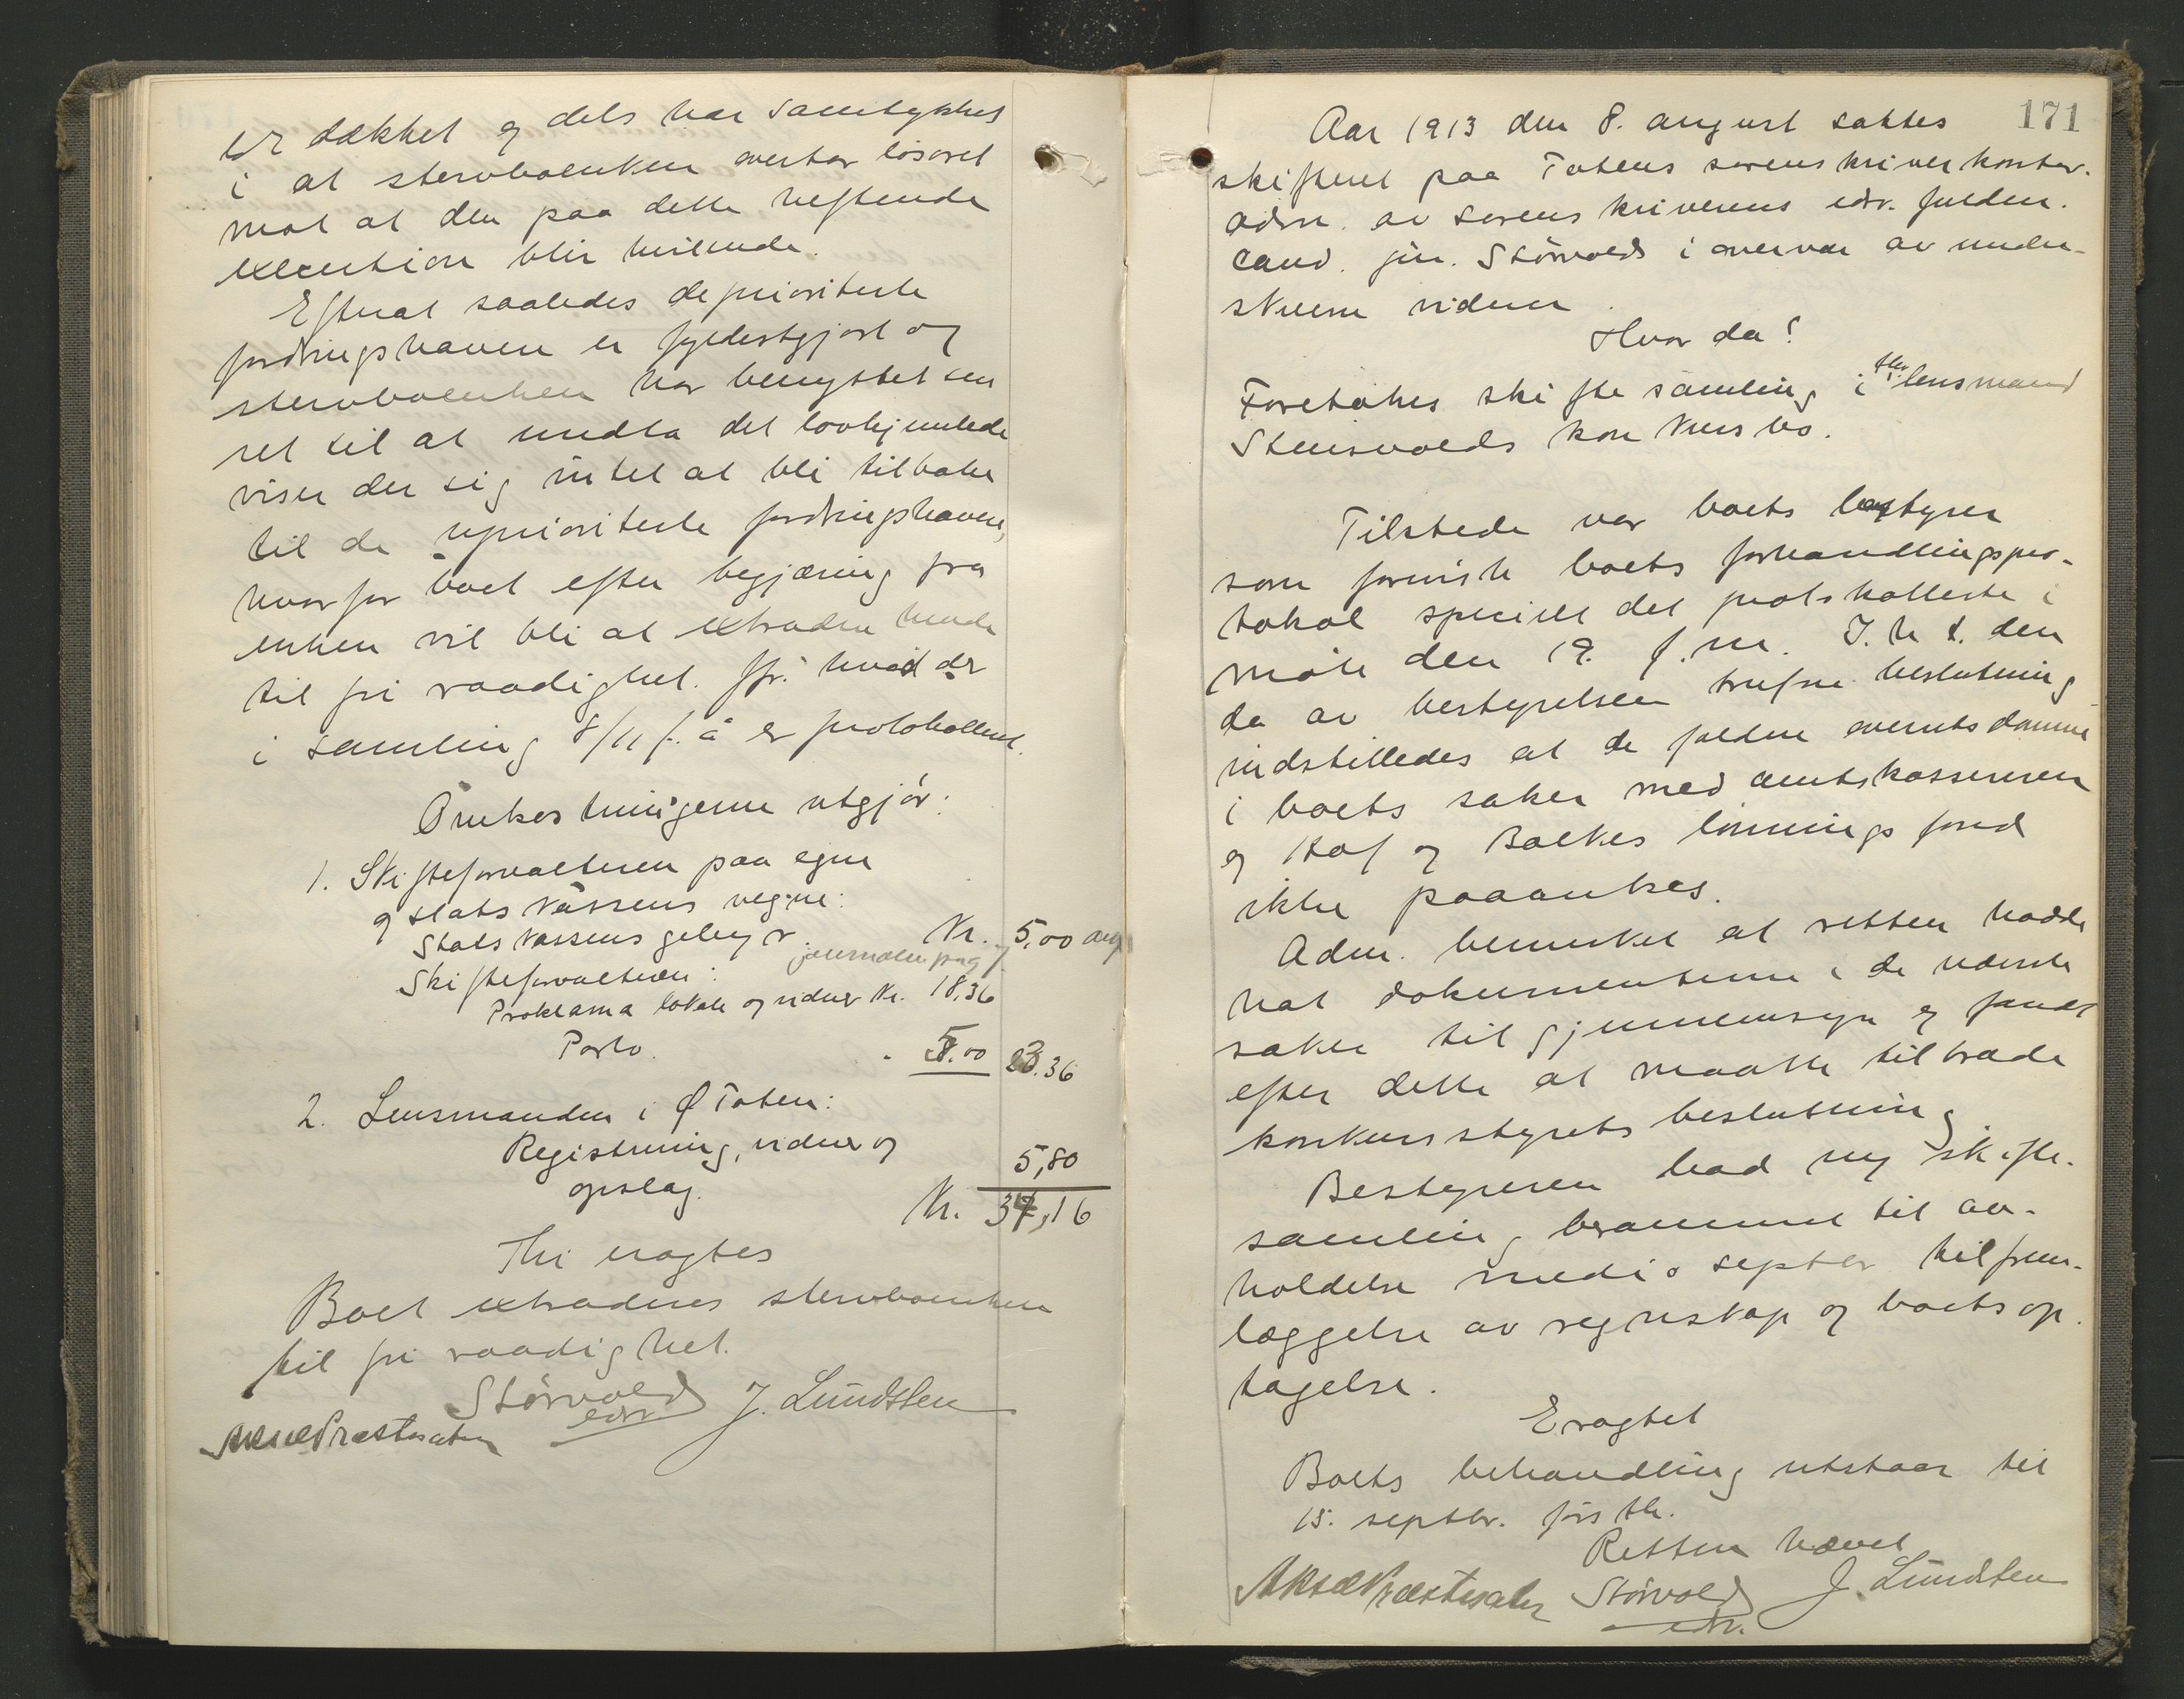 er dækket og dels har samtykket
i at stervboenken overtar løsøret
mot at den paa dette heftende
execution blir hvilende.
Efterat saaledes de prioriterte
fordringshavere er fyldestgjort og
stervboenken har benyttet sin
ret til at undta det lovhjemlede
viser der sig intet at bli tilbake
til de uprioriterte fordringshavere,
hvorfor boet efter begjæring fra
enken vil bli at extradere hende
til fri raadighet. Jfr. hvad der
i samling 8/11 f. å er protokolleret.
Omkostningerne utgjør:
1. Skifteforvalteren paa egne
og statskassens vegne:
Statskassens gebyr Kr. 5,00
Skifteforvalteren: journalen pag
Proklama lokale og vidner Kr. 18,36
Porto. - 5.00 23.36
2. Lensmanden i Ø Toten:
Registrering, vidner og
opslag. 5,80
Kr. 34,16
Thi eragtes
Boet extraderes stervboenken
til fri raadighet.
Störvold J. Lundsten
edv.
Aksel Præstesæter
171
Aar 1913 den 8. august sattes
skifteret paa Totens sorenskriverkontor.
adm. av sorenskriverens edv. fuldm.
cand. jur. Störvold i overvær av under-
skrevne vidner
Hvorda!
Foretokes skiftesamling i fhv. lensmand
Stensvolds konkursbo.
Tilstede var boets bestyrer
som foreviste boets forhandlingspro-
tokol specielt det protokollerte i
møte den 19. f.m. I.h.t. den
da av bestyrelsen trufne beslutning
indstilledes at de faldne overretsdomme
i boets saker med amtskassereren
og Kolf og Balkes lønningsfond
ikke paaankes.
Adm. bemerket at retten hadde
hat dokumenterne i de nævnte
saker til gjennemsyn og fandt
efter dette at maatte tiltræde
konkursstyrets beslutning
Bestyreren bad ny skifte-
samling berammet til av-
holdelse medio septbr til frem-
læggelse av regnskap og boets op-
tagelse.
Eragtet
Boets behandling utstaar til
15. septbr. førstk.
Retten hævet
Aksel Præstesæter Störvold J. Lundsten
edv.